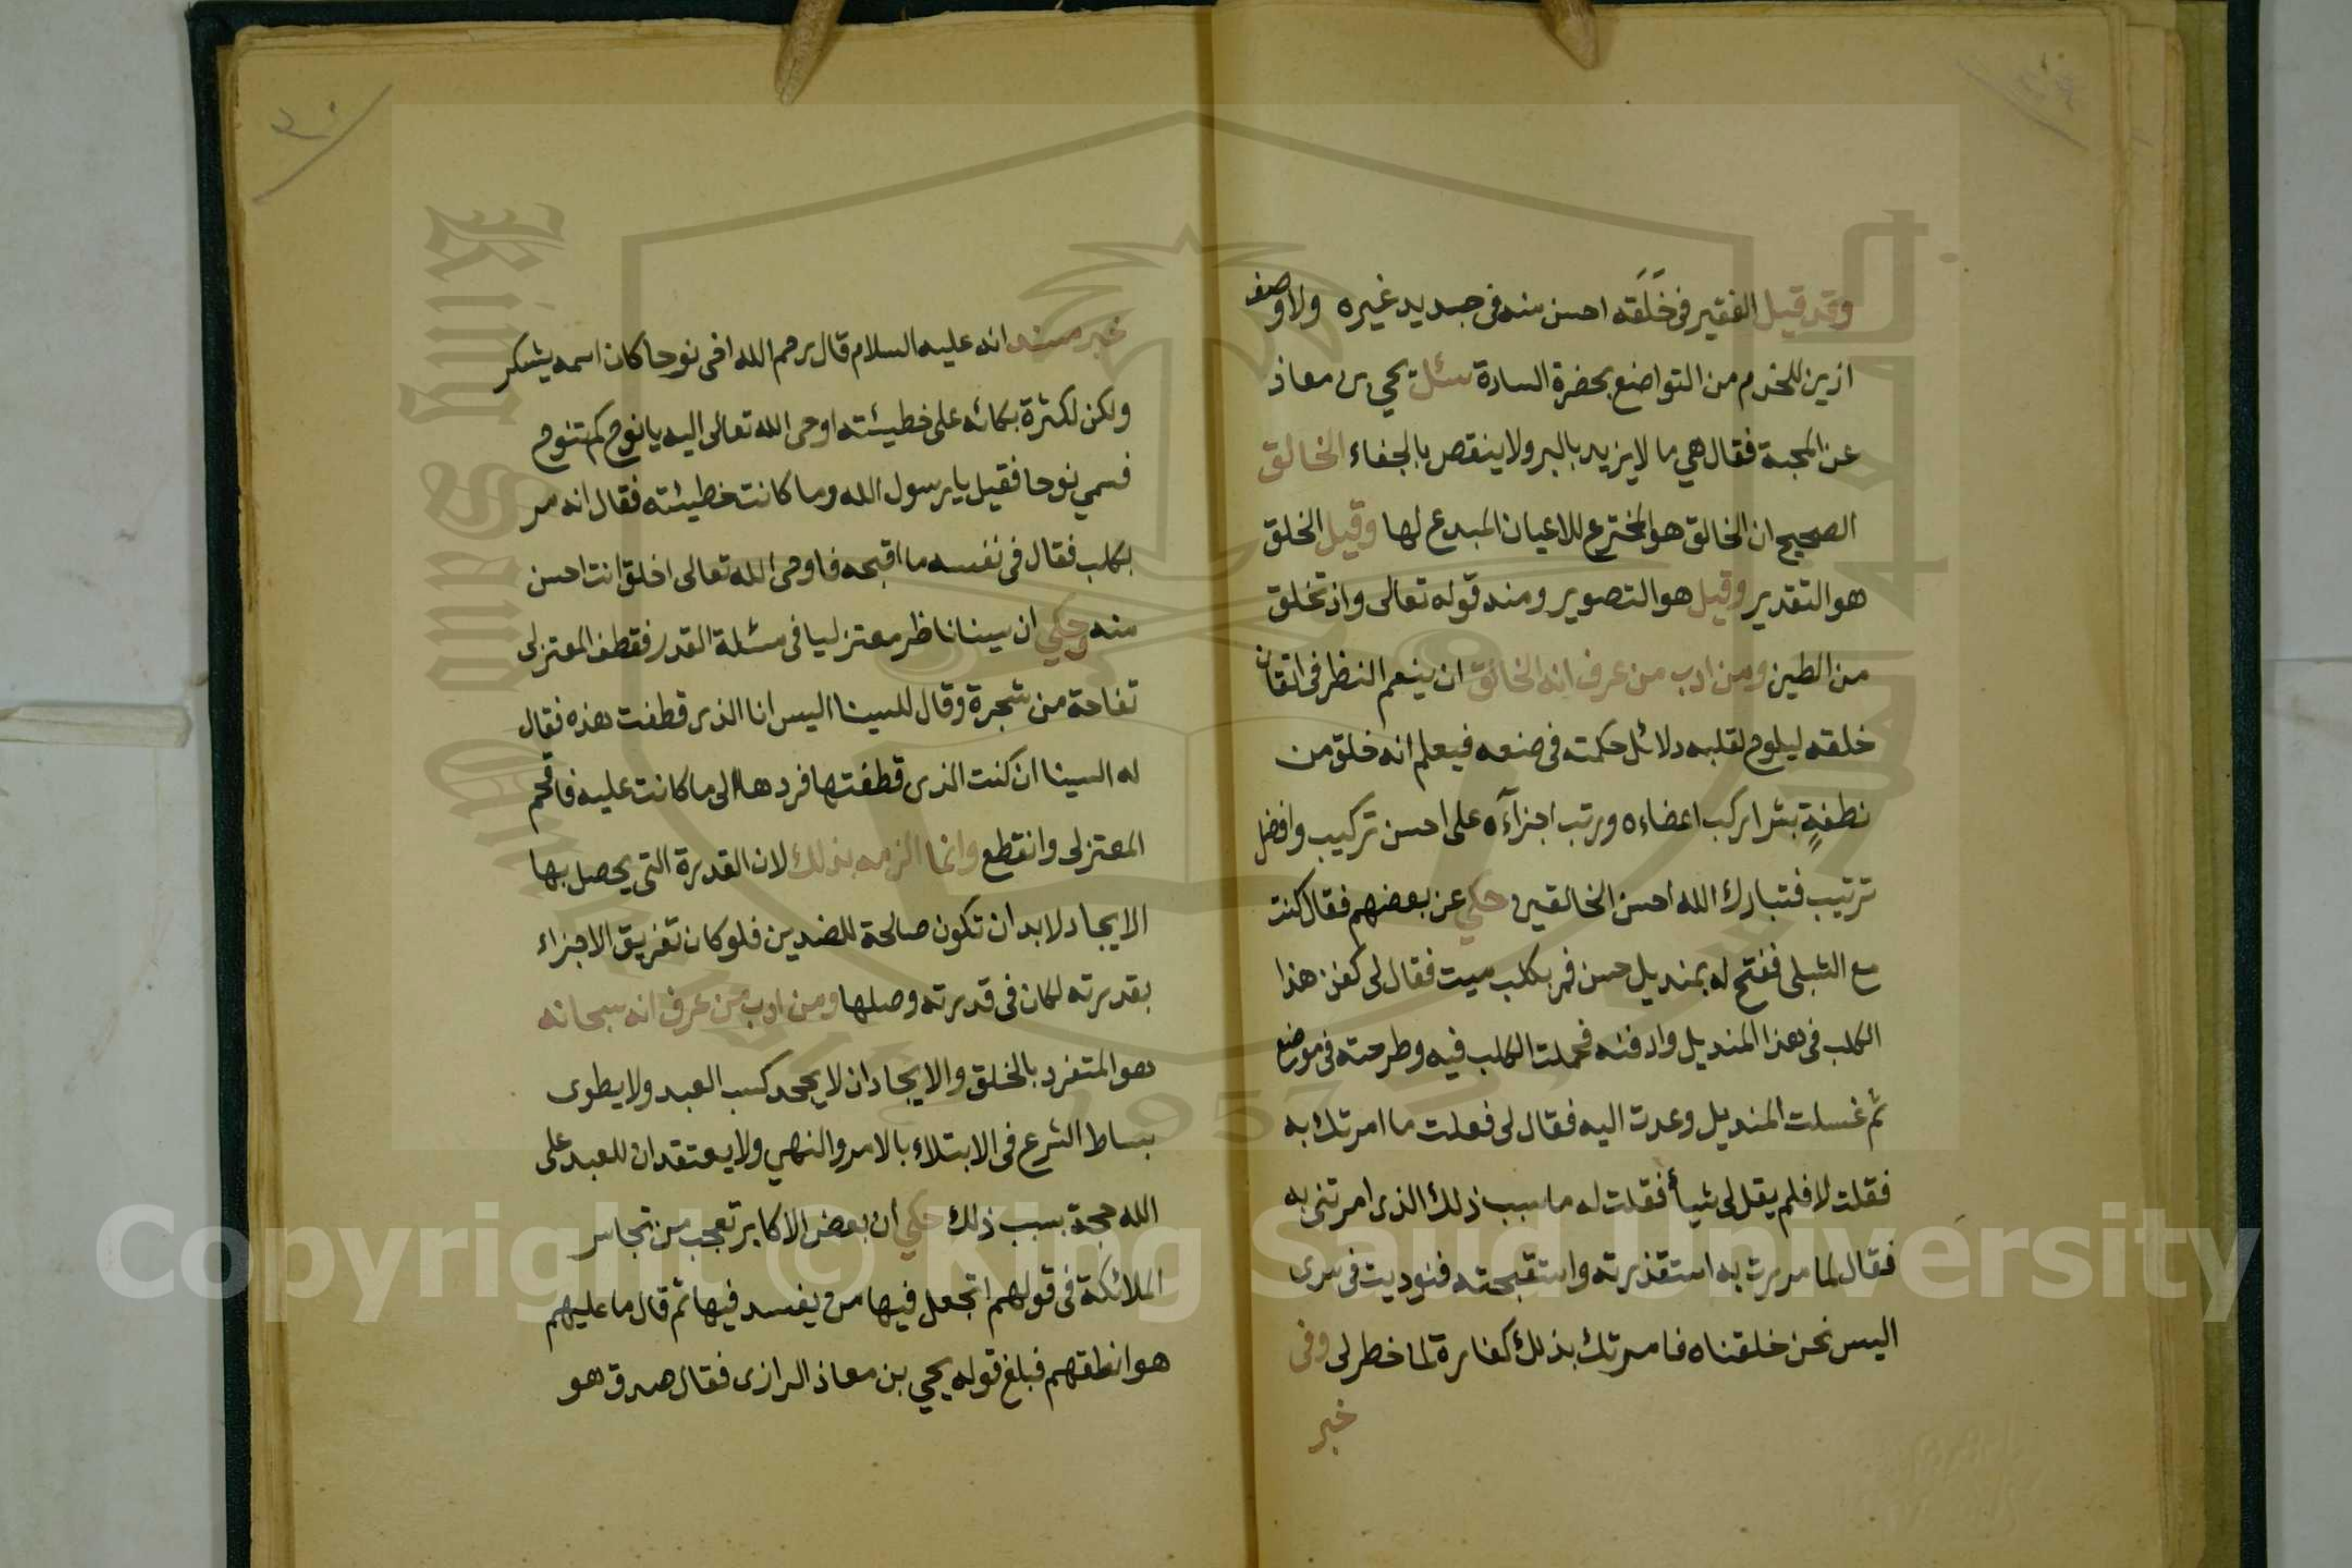 وقد قيل الفقير في خَلَقه احسن منه في جديد غيره ولا وصف
ازين للخدم من التواضع بحضرة السادة سئل يحيى بن معاذ
عن المحبة فقال هي ما لا يزيد بالبر ولا ينقص بالجفاء الخالق
الصحيح ان الخالق هو المخترع للاعيان المبدع لها وقيل الخلق
هو التقدير وقيل هو التصوير ومنه قوله تعالى واذ تخلق
من الطين ومن ادب من عرف انه الخالق ان ينعم النظر في اتقان
خلقه ليلوح لقلبه دلائل حكمته في صنعه فيعلم انه خلق من
نطفةٍ بشرا ركب اعضاءه ورتب اجزآءه على احسن تركيب وافضل
ترتيب فتبارك الله احسن الخالقين وحكي عن بعضهم فقال كنت
مع الشبلي ففتح له بمنديل حسن فمر بكلب ميت فقال لي كفن هذا
الكلب في هذا المنديل وادفنه فحملت الكلب فيه وطرحته في موضع
ثم غسلت المنديل وعدت اليه فقال لي فعلت ما امرتك به
فقلت لا فلم يقل لي شيأ فقلت له ما سبب ذلك الذي امرتني به
فقال لما مررت به استقذرته واستقبحته فنوديت في سري
اليس نحن خلقناه فامرتك بذلك كفارة لما خطر لي وفي
خبر
خبر مسند انه عليه السلام قال رحم الله اخي نوحا كان اسمه يشكر
ولكن لكثرة بكائه على خطيئته اوحى الله تعالى اليه يا نوح كم تنوح
فسمي نوحا فقيل يا رسول الله وما كانت خطيئته فقال انه مر
بكلب فقال في نفسه ما اقبحه فاوحى الله تعالى اخلق انت احسن
منه وحكي ان سينا ناظر معتزليا في مسئلة القدر فقطف المعتزلي
تفاحة من شجرة وقال للسينا اليس انا الذي قطفت هذه فقال
له السينا ان كنت الذي قطفتها فردها الى ما كانت عليه فافحم
المعتزلي وانقطع وانما الزمه بذلك لان القدرة التي يحصل بها
الايجاد لابد ان تكون صالحة للضدين فلو كان تفريق الاجزاء
بقدرته لكان في قدرته وصلها ومن ادب من عرف انه سبحانه
هو المتفرد بالخلق والايجاد ان لا يجحد كسب العبد ولا يطوى
بساط الشرع في الابتلاء بالامر والنهي ولا يعتقد ان للعبد على
الله حجة بسبب ذلك حكي ان بعض الاكابر تعجب من تجاسر
الملائكة في قولهم اتجعل فيها من يفسد فيها ثم قال ما عليهم
هو انطقهم فبلغ قوله يحيي بن معاذ الرازي فقال صدق هو
Copyright © King Saud University
1957